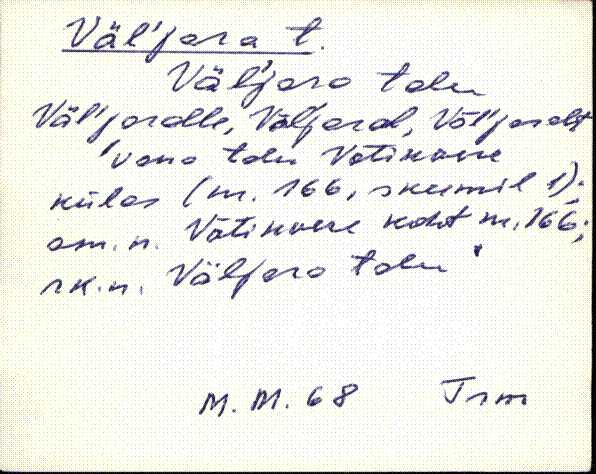 Väl'jara t.
Väl'jara talu
Väl'jaralle, Väl'jaral, Väl'jaralt
'vana talu Vätikvere
külas (m. 166, skeemil 1);
om. n. Vätikvere koht m. 166;
rk. n. Väljara talu'
M. M. 68 Trm